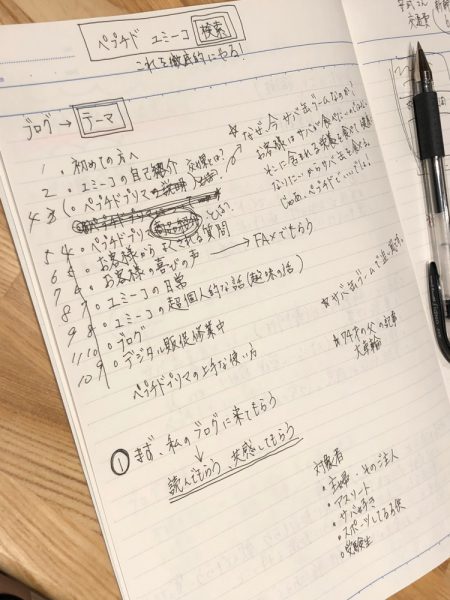 ペプチド エミーコ 検索
これを徹底的にやる!
ブログ → テーマ
1 。初めての方へ
2 。エミーコの自己紹介
4 3 (。ペプチドプリマ とは?
5 4 。ペプチドプリマ とは?
6 5 。お客様からよくされる質問 → FAXでもらう
7 6 。お客様の喜びの声
8 7 。エミーコの日常
9 8 。エミーコの超個人的な話(趣味の話)
11 10 。ブログ
10 9 。デジタル販促修業中
ペプチドプリマの上手な使い方
☆なぜ今 サバ缶ブームなのか?
お客様はサバが食べたい
に含まれる栄養を食べて健康
になりたいからサバ缶を食べる
じゃあ、ペプチドで……でしょ!
☆サバ缶ブームで
☆74才の父の記事
大車輪
① まず、私のブログに来てもらう
↓
読んでもらう、共感してもらう
対象者
・主婦・そのご主人
・アスリート
・サバ好き
・スポーツしてる子供
・受験生